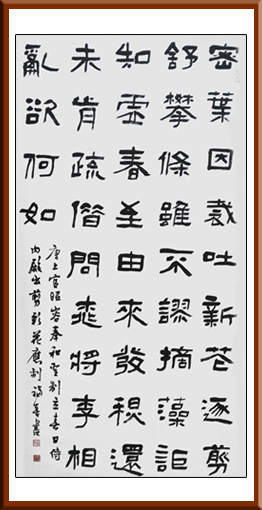 密葉因裁吐新花逐剪
舒攀條雖不謬摘藻詎
知虛春至由來發秋還
未肯疏借問桃將李相
亂欲何如
唐上官昭容奉和聖制立春日侍
內殿出剪彩花應制